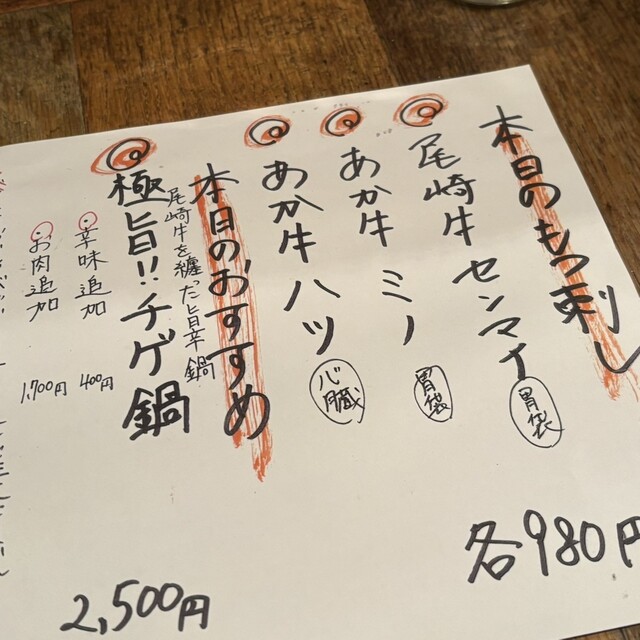 本日のもつ刺し
尾崎牛 センマイ 胃袋
あか牛 ミノ 胃袋
あか牛 ハツ 心臓
各980円
本日のおすすめ
尾崎牛を纏った旨辛鍋
極旨!!チゲ鍋
2,500円
辛味追加 400円
お肉追加 1,700円